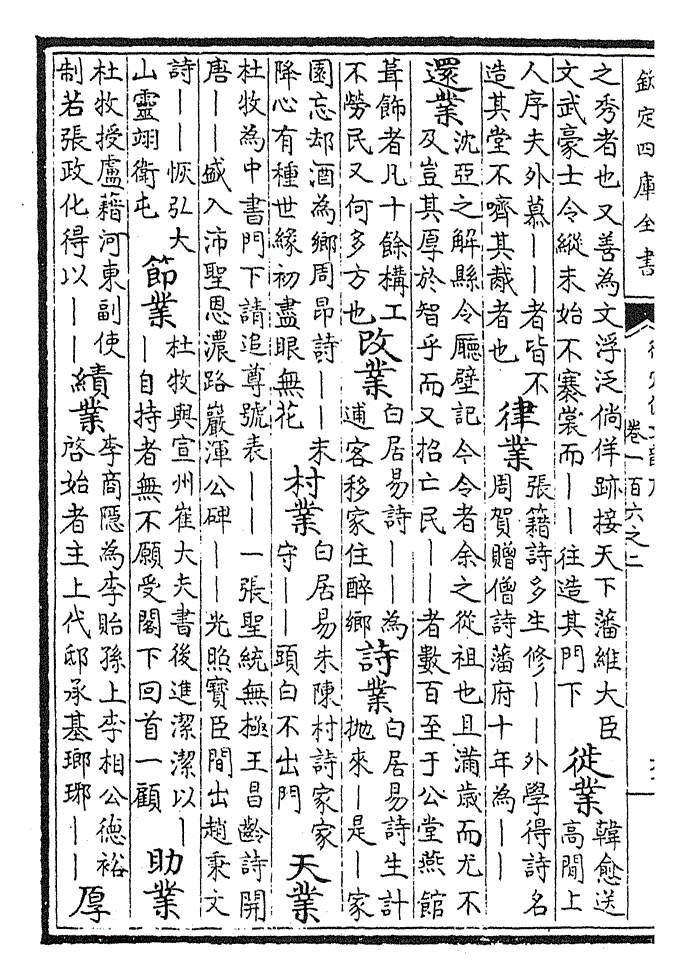 欽定四庫全書
卷一百六之二
之秀者也又善為文浮泛倘佯跡接天下藩維大臣
文武豪士令縱未始不褰裳而——往造其門下
徙業
韓愈送
高閒上
人序夫外慕——者皆不
造其堂不嚌其胾者也
律業
張籍詩多生修——外學得詩名
周賀贈僧詩藩府十年為——
還業
沈亞之解縣令廳壁記今令者余之從祖也且滿歲而尤不
及豈其厚於智乎而又招亡民——者數百至于公堂燕館
葺飾者凡十餘構工
不勞民又何多方也
改業
白居易詩——為
逋客移家住醉鄉
詩業
白居易詩生計
拋來—是—家
園忘却酒為鄉周昂詩——未
降心有種世緣初盡眼無花
村業
白居易朱陳村詩家家
守——頭白不出門
天業
杜牧為中書門下請追尊號表——一張聖統無極王昌齡詩開
唐——盛入沛聖恩濃路巖渾公碑——光照寶臣間出趙秉文
詩——恢弘大
山靈翊衛屯
節業
杜牧與宣州崔大夫書後進潔潔以—
—自持者無不願受閣下回首一顧
助業
杜牧授盧籍河東副使
制若張政化得以——
績業
李商隱為李貽孫上李相公德裕
啓始者主上代邸承基瑯琊——
厚